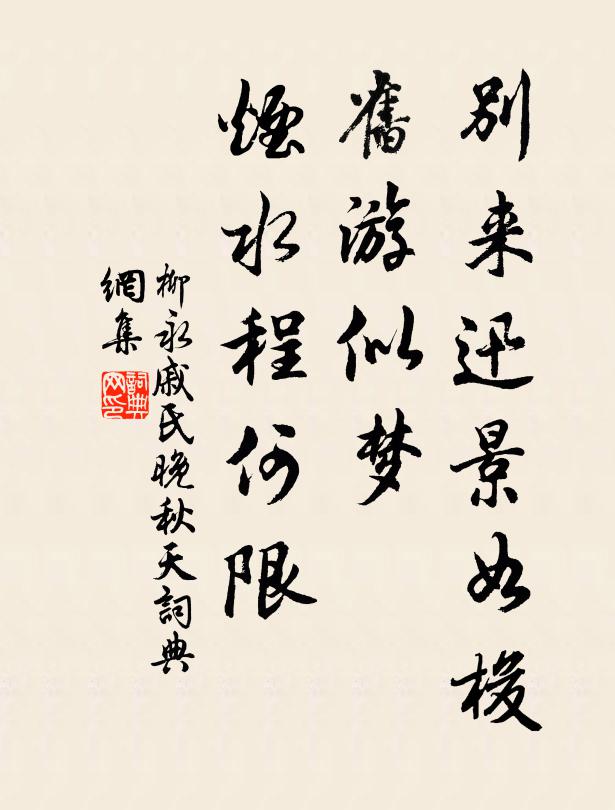 别来迅景如梭
舊游似梦
煙水程何限
柳永戚氏晚秋天詞典
網集
詞典
网印